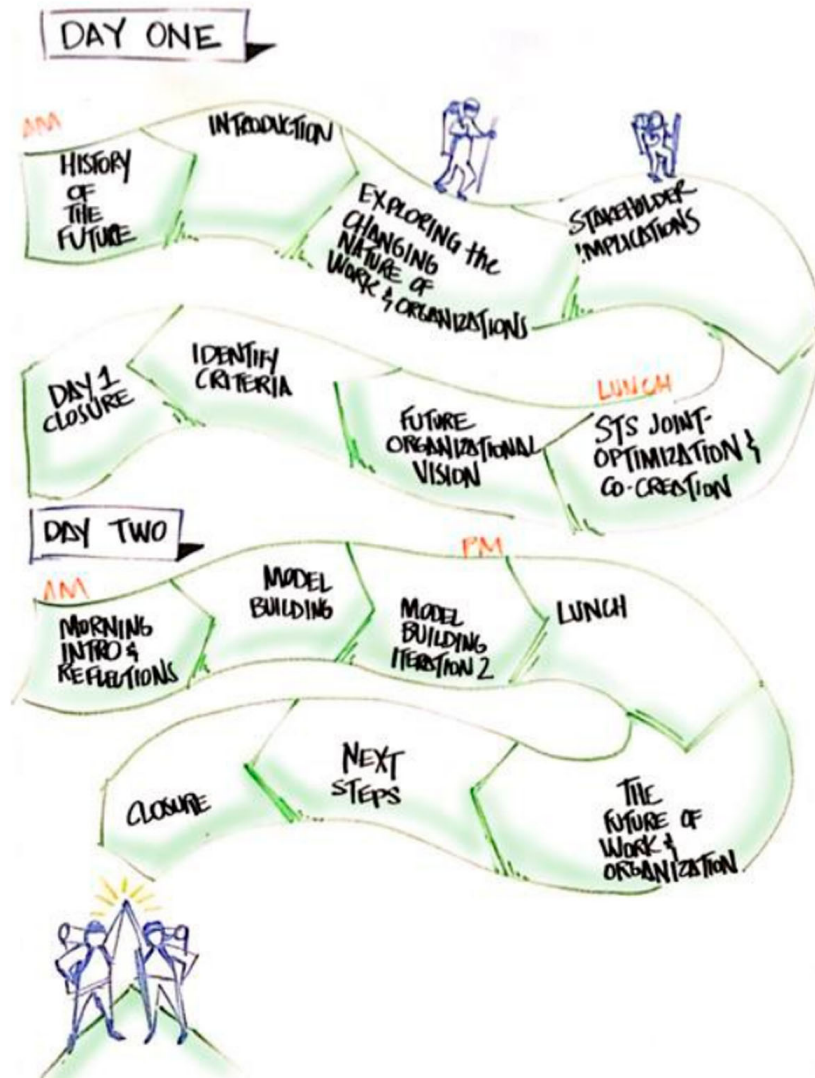 DAY ONE
AM
HISTORY
OF
THE
FUTURE
INTRODUCTION
EXPLORING the
CHANGING
NATURE OF
WORK & ORGANIZATIONS
STAKEHOLDER
IMPLICATIONS
LUNCH
STS JOINT-
OPTIMIZATION &
CO-CREATION
FUTURE
ORGANIZATIONAL
VISION
IDENTIFY
CRITERIA
DAY 1
CLOSURE
DAY TWO
AM
MORNING
INTRO &
REFLECTIONS
MODEL
BUILDING
PM
MODEL
BUILDING
ITERATION 2
LUNCH
THE
FUTURE OF
WORK &
ORGANIZATION
NEXT
STEPS
CLOSURE